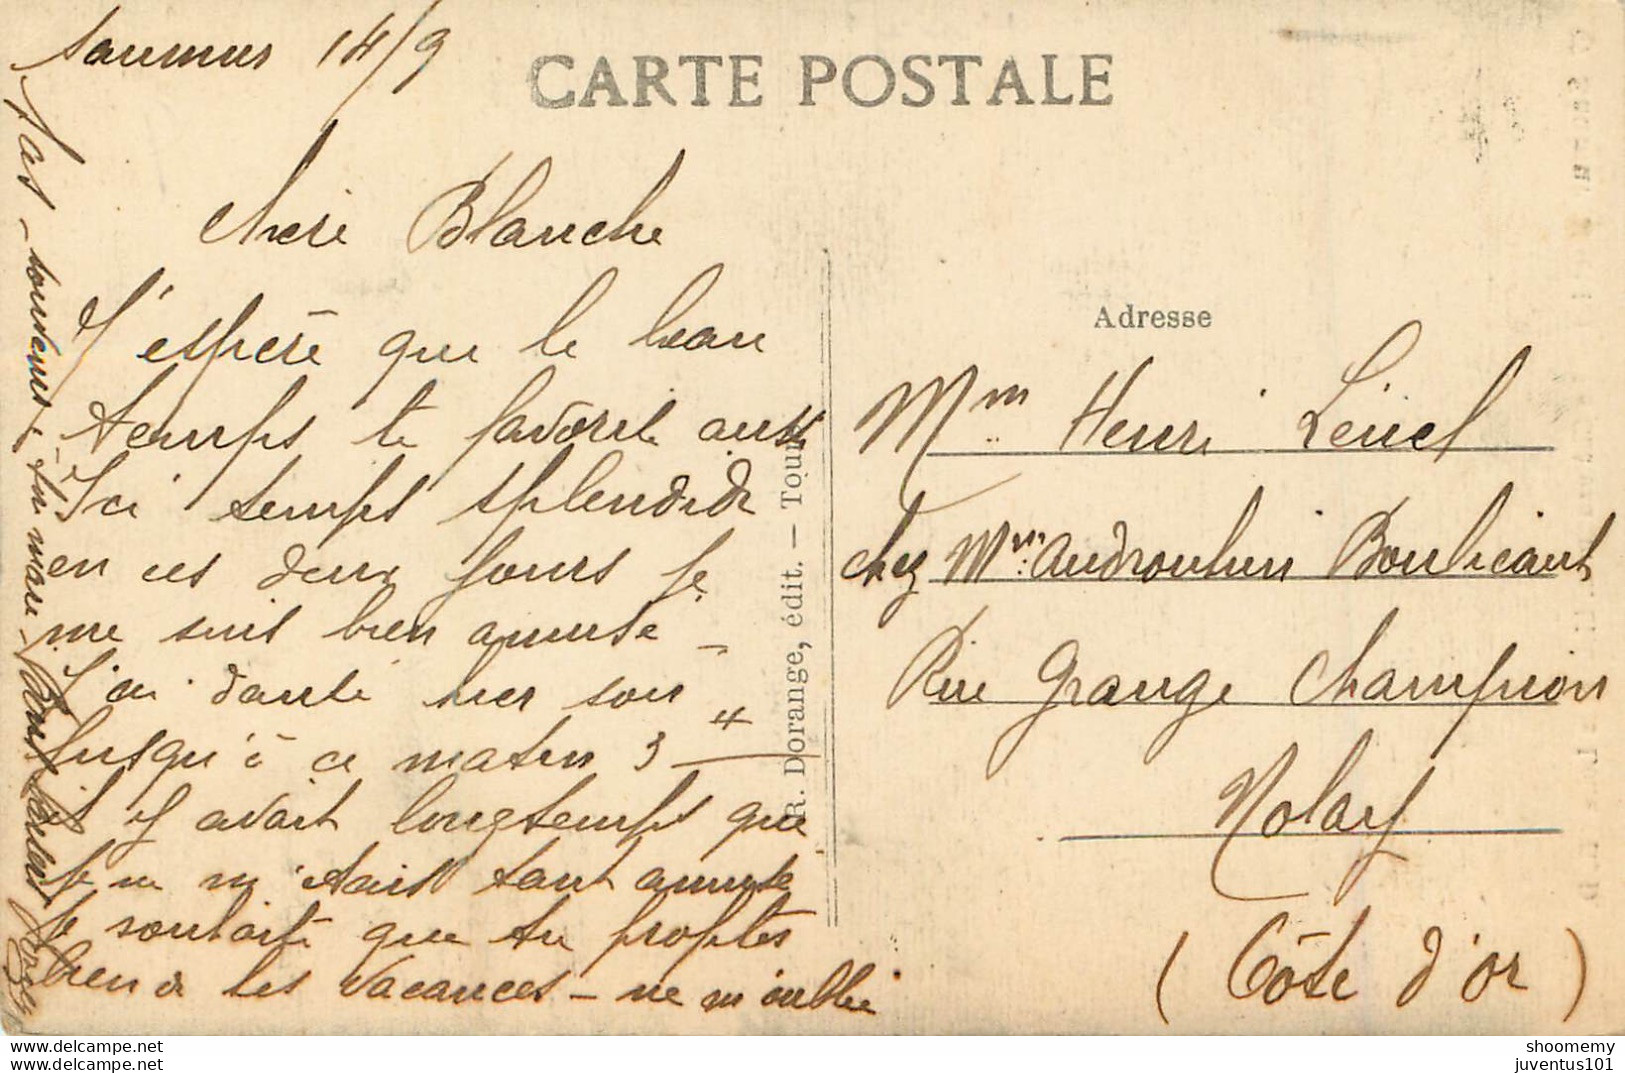 Saumur 14/9
CARTE POSTALE
Chère Blanche
J'espère que le beau
temps te favorise aussi
Ici temps splendide
en ces deux jours je
me suis bien amusé –
J'ai dansé hier soir
jusqu'à ce matin 3 H
il y avait longtemps que
je ne m'étais tant amusé
je souhaite que tu profites
bien de tes vacances – ne m'oublie
pas – souviens
Bons baisers
R. Dorange, édit. – Tours
Adresse
Mme Henri
chez Mme Androuhin Boulicaut
Rue Grange Champion
Nolay
(Côte d'or)
www.delcampe.net
shoomemy
juventus101